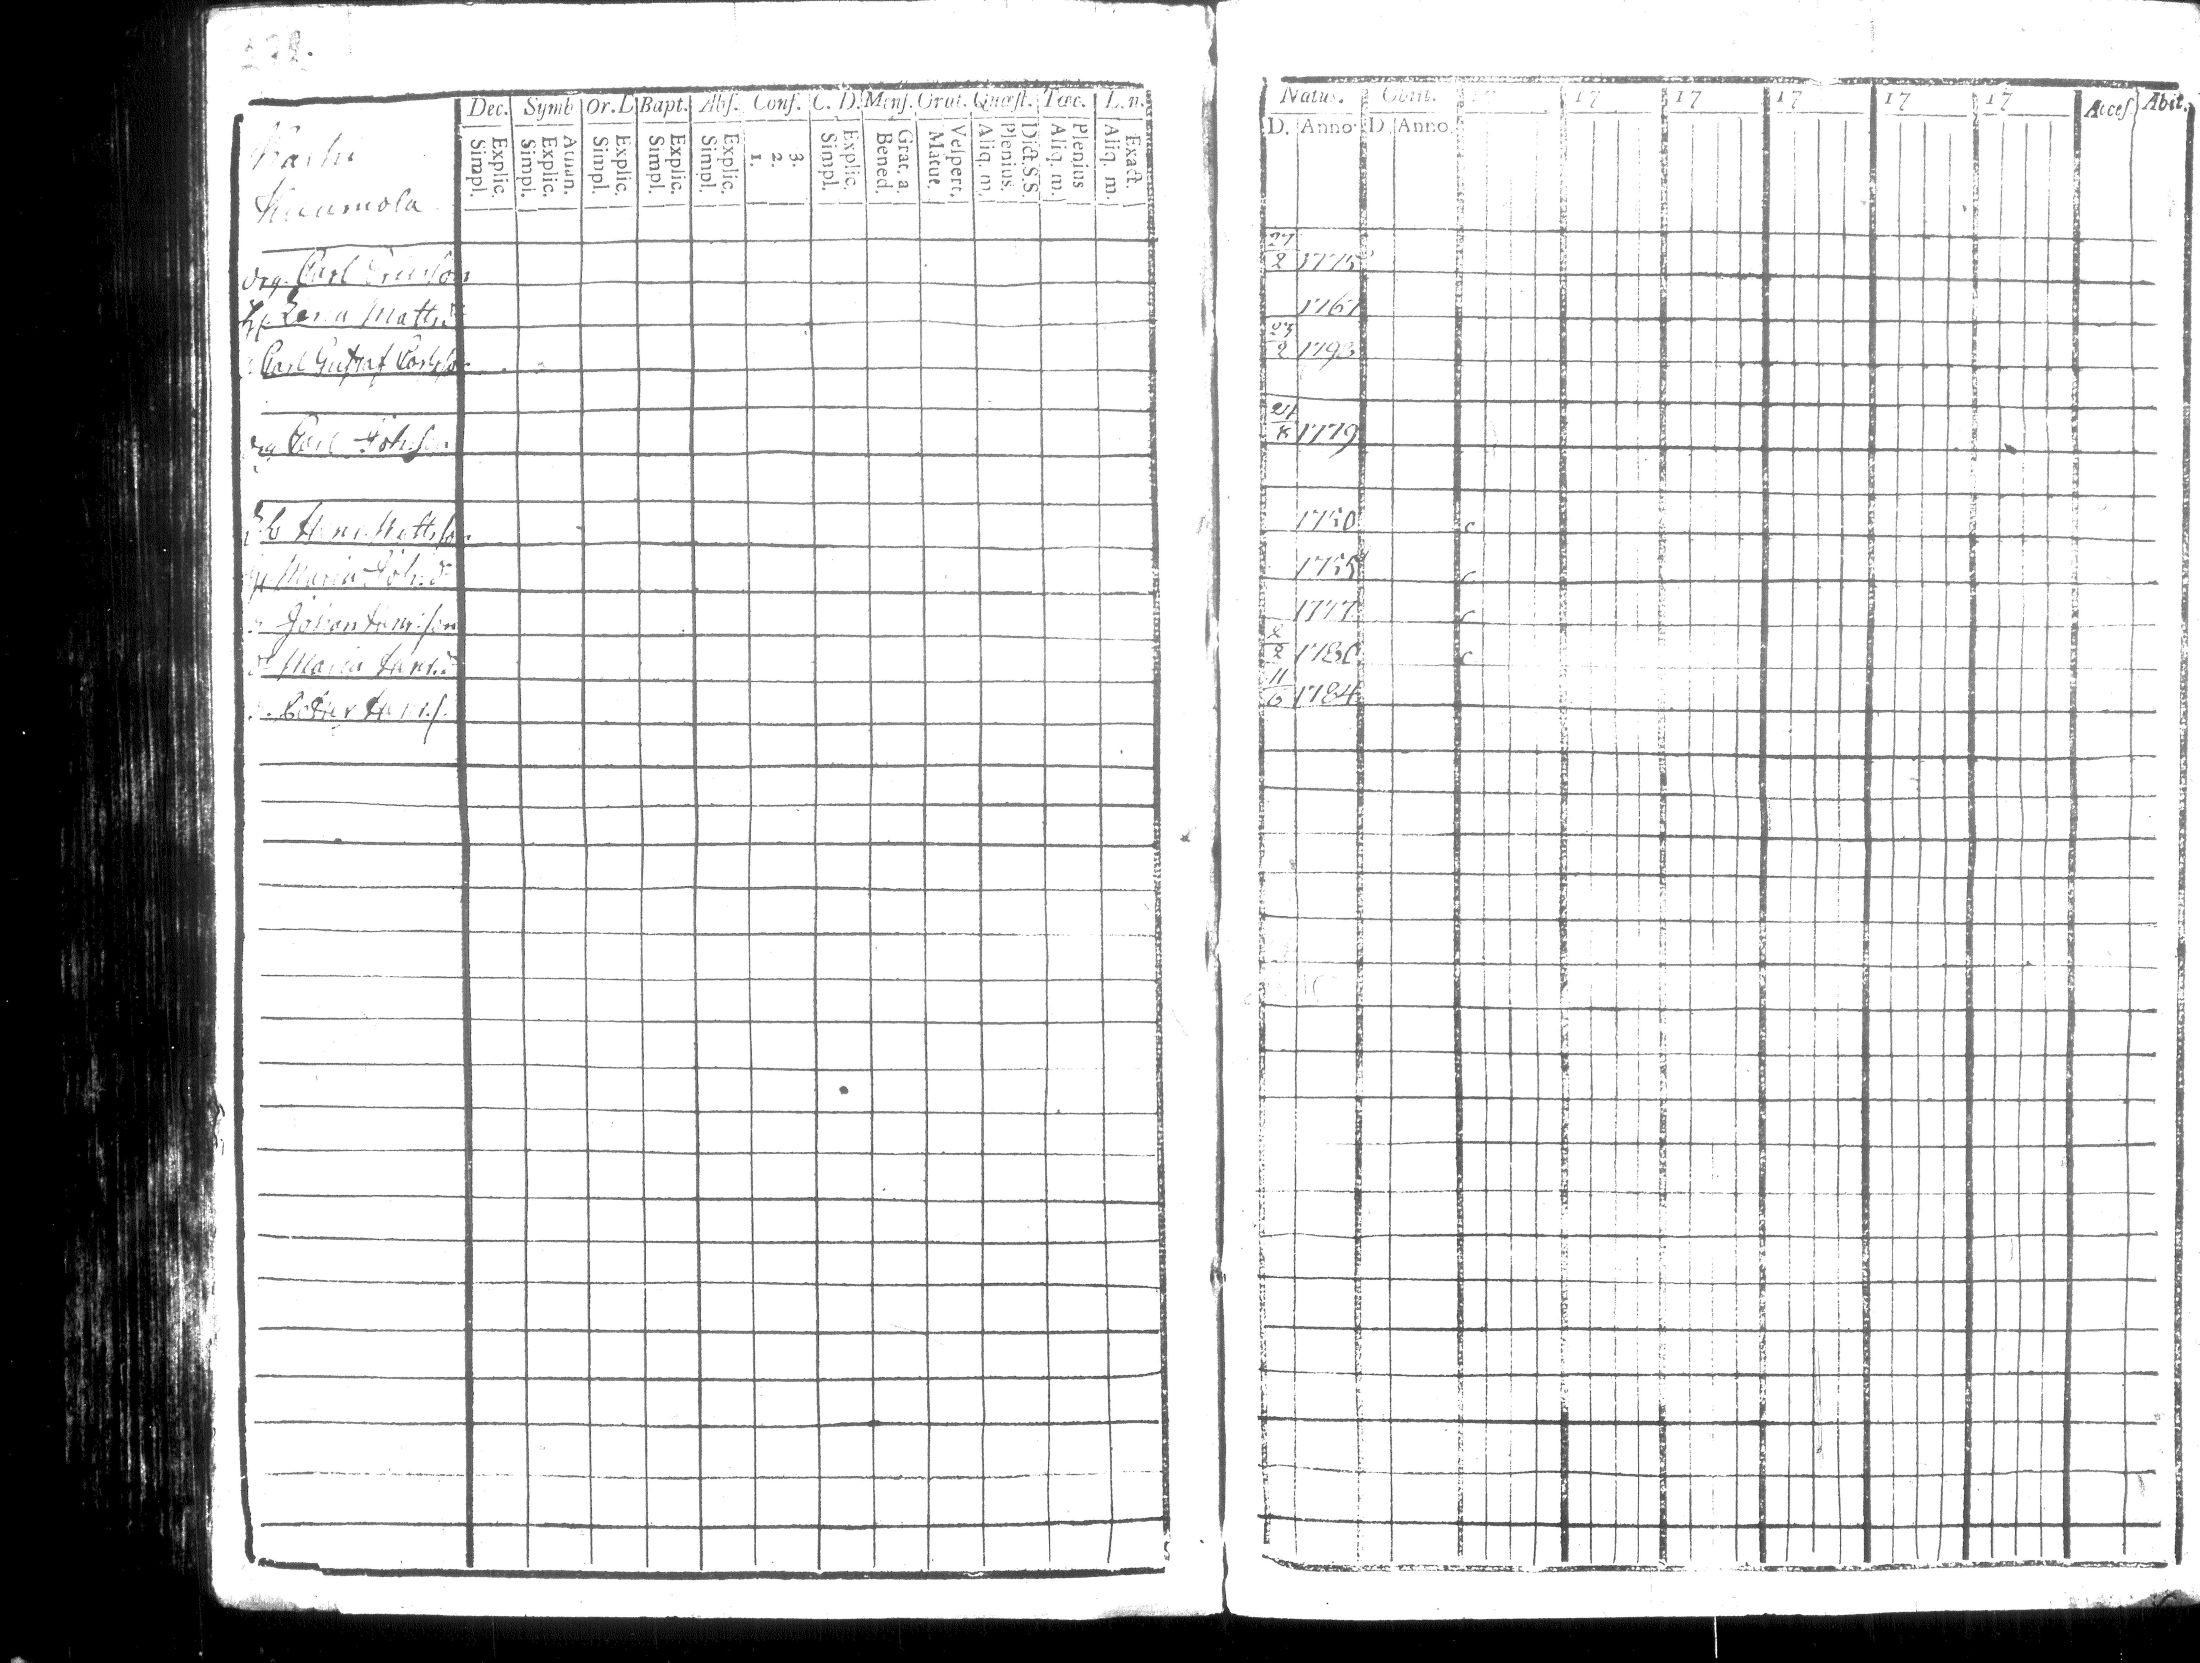 Dec. Symb Or. D Bapt. Abs. Conf. C. D. Mens. Grat. Quæst. Tœc. L. n.
Simpl. Explic. Simpl. Explic. Athan. Simpl. Explic. Simpl. Explic. Simpl. Explic. 1. 2. 3. Simpl. Explic. Bened. Grat. a. Matut. Vespert. Aliq. m. Plenius. Dict. S.S. Aliq. m. Plenius Aliq. m. Exact.
Carl Ericsson
Lena Matts d
Carl Gustaf Carlsson
Carl Johsson
Henr Mattsson
Maria Joh. d
Johan Henrsson
Maria Henr. d
Petter Henr. s.
Natus. Obiit. 17 17 17 17 17 17 Acces. Abit.
D. Anno D. Anno
27/2 1775
1767
23/2 1793
24/8 1779
1750
1755
1777
1780
11/6 1784